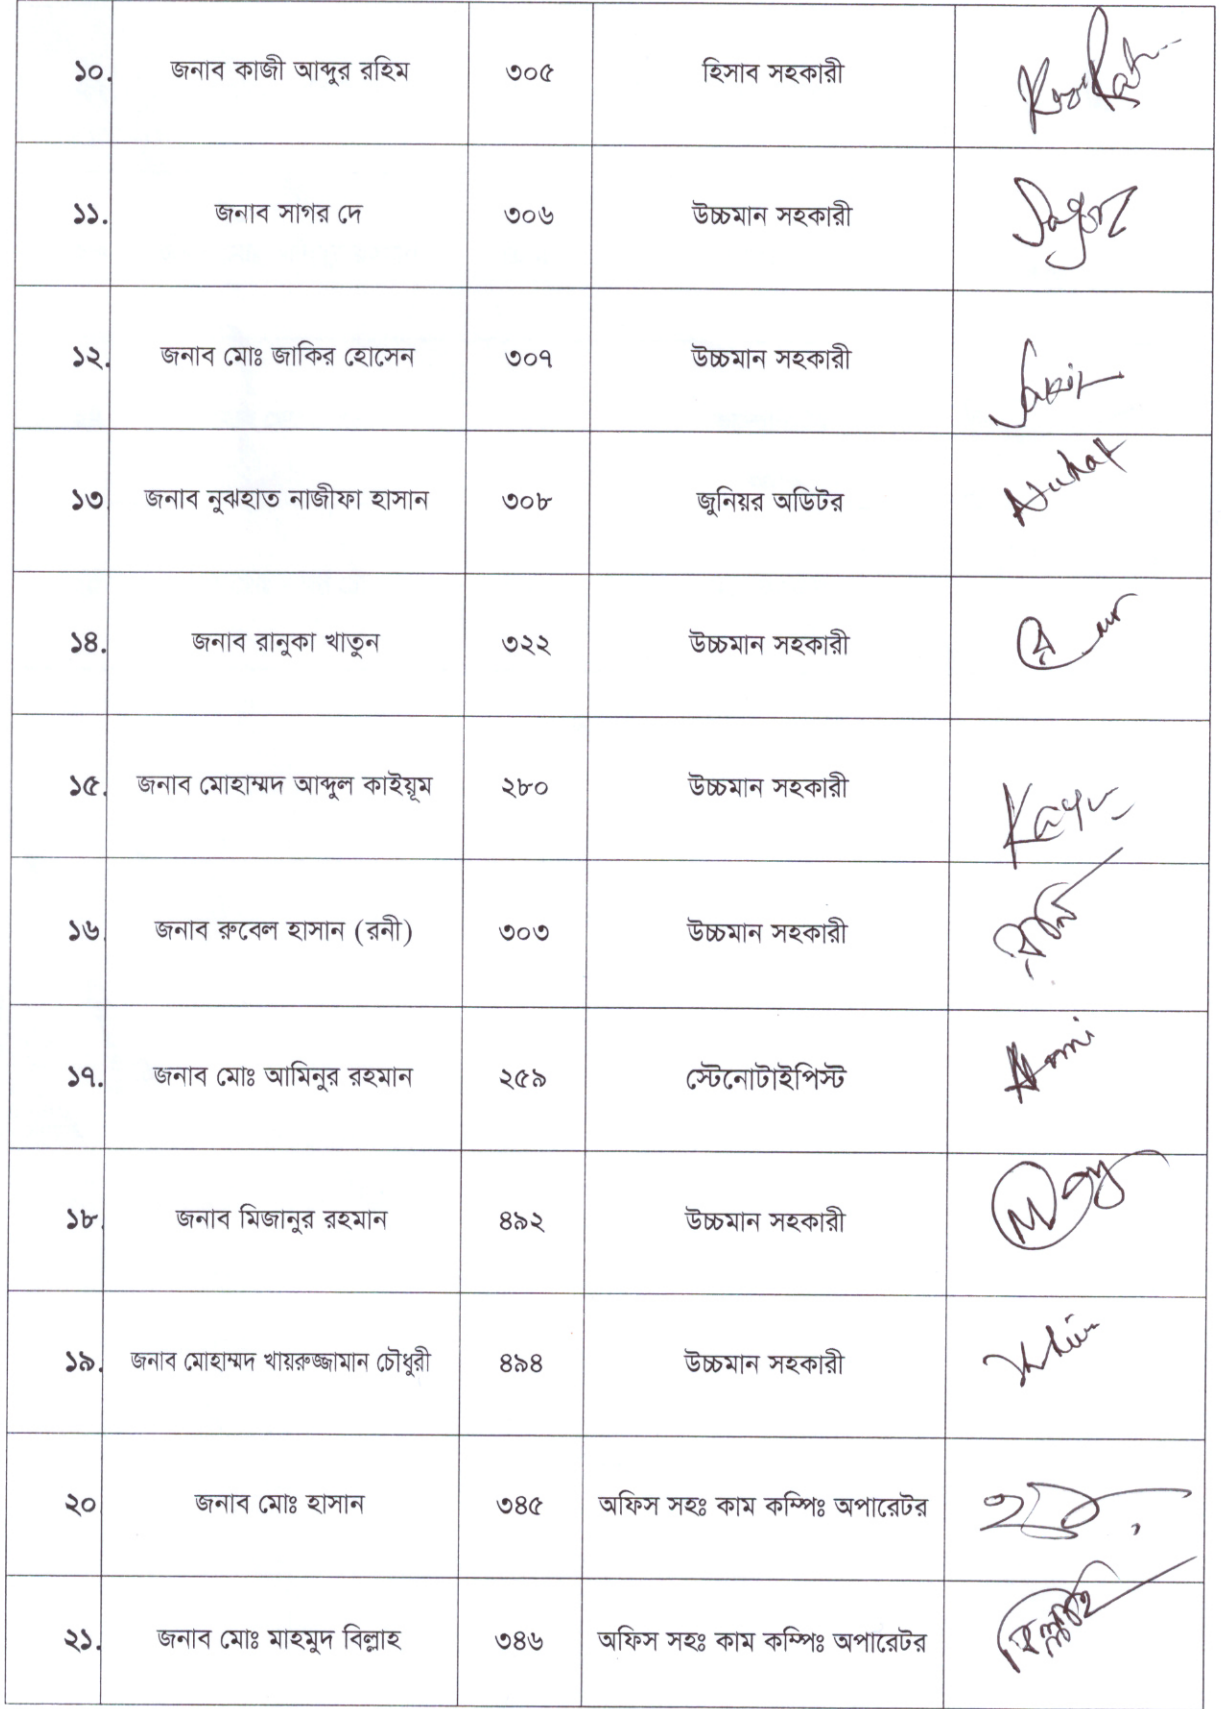 ১০. জনাব কাজী আব্দুর রহিম ৩০৫ হিসাব সহকারী
১১. জনাব সাগর দে ৩০৬ উচ্চমান সহকারী Sagor
১২. জনাব মোঃ জাকির হোসেন ৩০৭ উচ্চমান সহকারী
১৩ জনাব নুঝহাত নাজীফা হাসান ৩০৮ জুনিয়র অডিটর
১৪. জনাব রানুকা খাতুন ৩২২ উচ্চমান সহকারী
১৫. জনাব মোহাম্মদ আব্দুল কাইয়ূম ২৮০ উচ্চমান সহকারী
১৬ জনাব রুবেল হাসান (রনী) ৩০৩ উচ্চমান সহকারী
১৭. জনাব মোঃ আমিনুর রহমান ২৫৯ স্টেনোটাইপিস্ট
১৮ জনাব মিজানুর রহমান ৪৯২ উচ্চমান সহকারী
১৯. জনাব মোহাম্মদ খায়রুজ্জামান চৌধুরী ৪৯৪ উচ্চমান সহকারী
২০ জনাব মোঃ হাসান ৩৪৫ অফিস সহঃ কাম কম্পিঃ অপারেটর
২১. জনাব মোঃ মাহমুদ বিল্লাহ ৩৪৬ অফিস সহঃ কাম কম্পিঃ অপারেটর বিল্লাহ